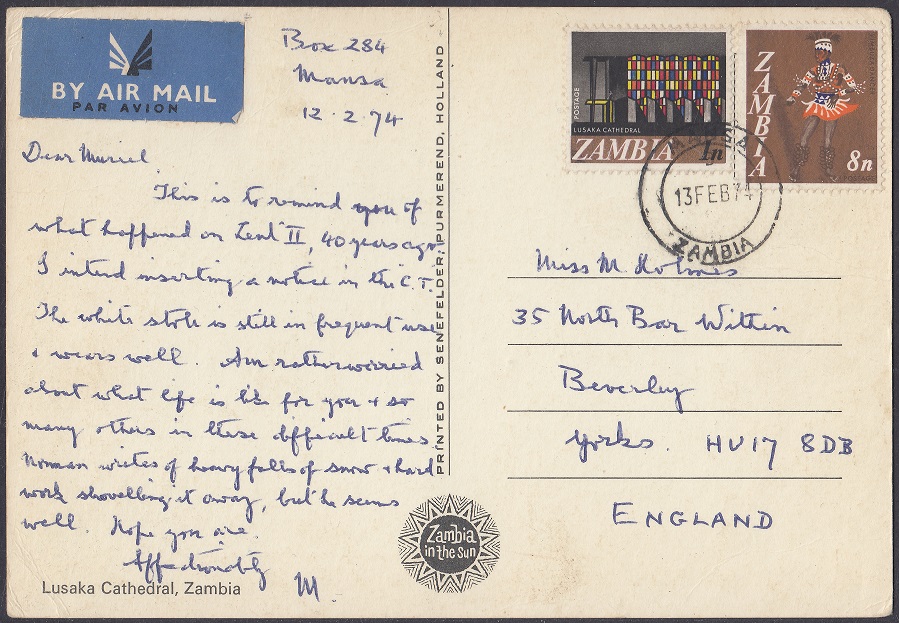 BY AIR MAIL
PAR AVION
Box 284
Mansa
12.2.74
Dear Muriel
This is to remind you of
what happened on Lent II, 40 years ago.
I intend inserting a notice in the C.T.
The white stole is still in frequent use
& wears well. Am rather worried
about what life is like for you & so
many others in these difficult times
Norman writes of heavy falls of snow & hard
work shovelling it away, but he seems
well. Hope you are.
Affectionately
M.
Lusaka Cathedral, Zambia
PRINTED BY SENEFELDER, PURMEREND, HOLLAND
Zambia
in the Sun
POSTAGE
LUSAKA CATHEDRAL
ZAMBIA 1n
ZAMBIA
8n
MANSA
13 FEB 74
ZAMBIA
Miss M Holmes
35 North Bar Within
Beverley
Yorks. HU17 8DB
ENGLAND